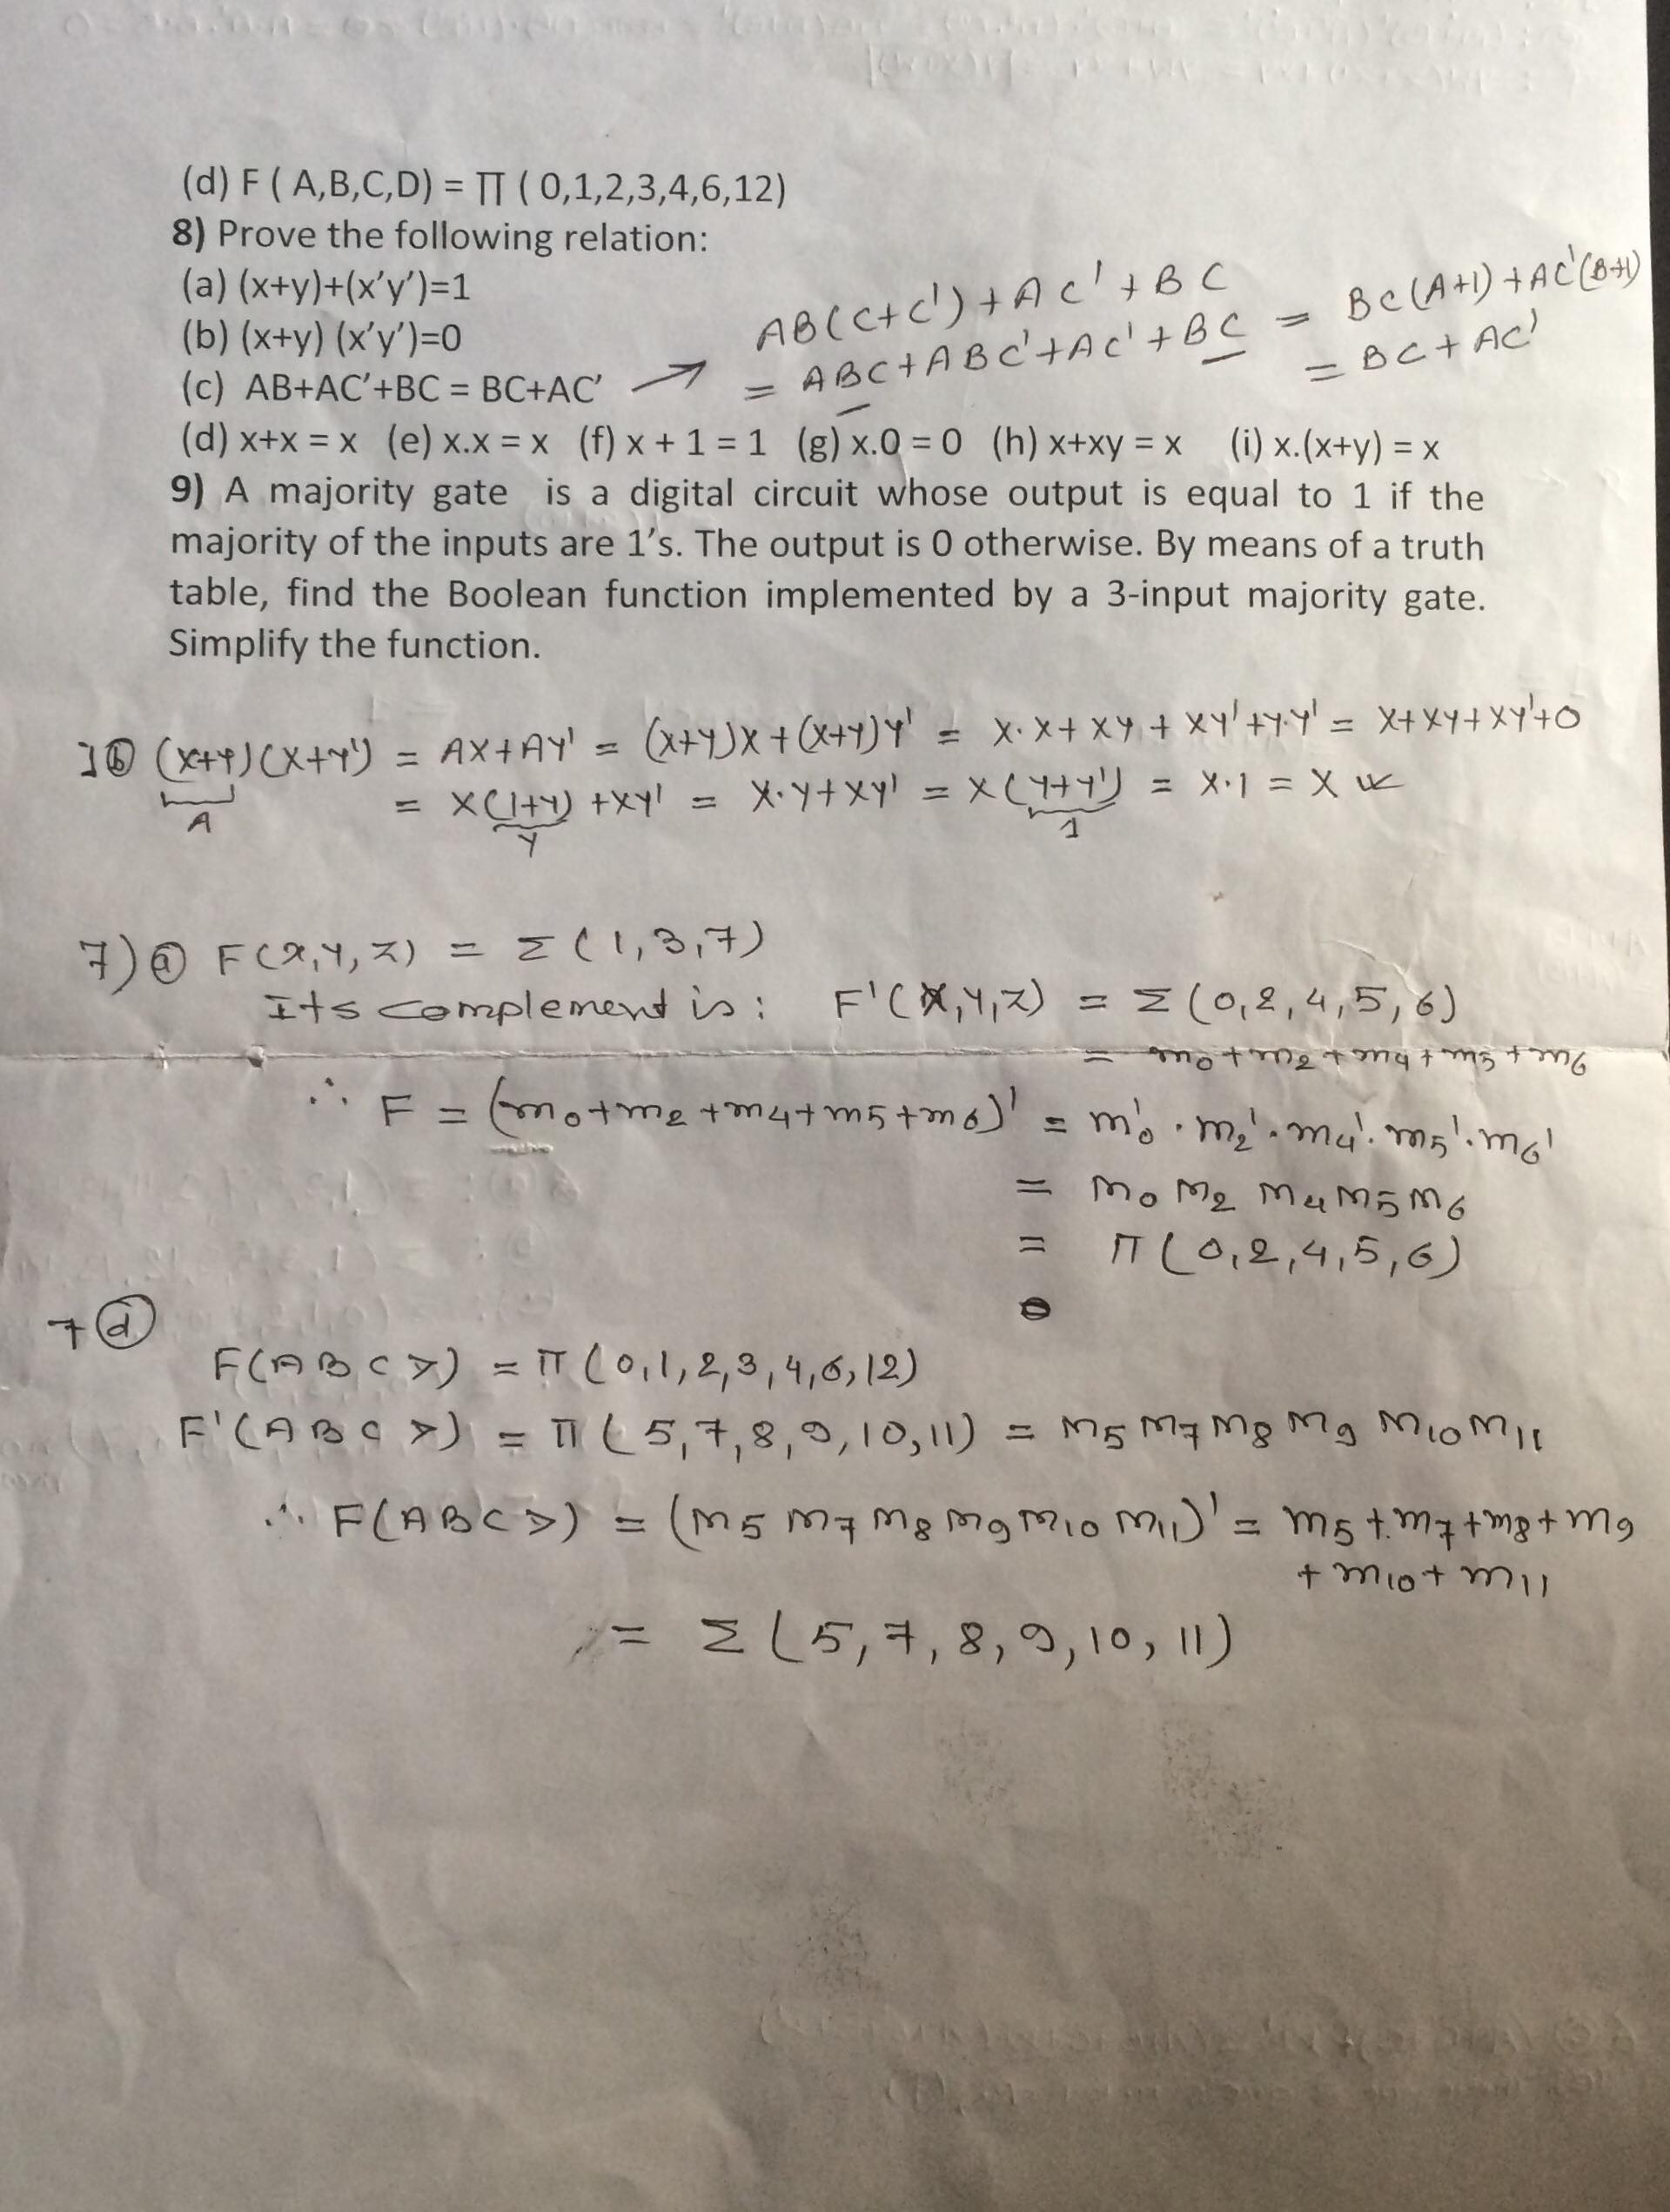 (d) F ( A,B,C,D) = ∏ ( 0,1,2,3,4,6,12)
8) Prove the following relation:
(a) (x+y)+(x’y’)=1
(b) (x+y) (x’y’)=0
(c) AB+AC’+BC = BC+AC’
AB(C+C')+AC'+BC = BC(A+1)+AC'(B+1)
= ABC+ABC'+AC'+BC = BC+AC'
(d) x+x = x (e) x.x = x (f) x + 1 = 1 (g) x.0 = 0 (h) x+xy = x (i) x.(x+y) = x
9) A majority gate is a digital circuit whose output is equal to 1 if the
majority of the inputs are 1’s. The output is 0 otherwise. By means of a truth
table, find the Boolean function implemented by a 3-input majority gate.
Simplify the function.
1 (b) (x+y)(x+y') = Ax+Ay' = (x+y)x+(x+y)y' = x·x+xy+xy'+y·y' = x+xy+xy'+0
A
= x(1+y)+xy' = x·y+xy' = x(y+y') = x·1 = x
y 1
7) (a) F(x,y,z) = Σ(1,3,7)
Its complement is: F'(x,y,z) = Σ(0,2,4,5,6)
= m0+m2+m4+m5+m6
∴ F = (m0+m2+m4+m5+m6)' = m0'·m2'·m4'·m5'·m6'
= M0 M2 M4 M5 M6
= Π(0,2,4,5,6)
7 (d)
F(ABCD) = Π(0,1,2,3,4,6,12)
F'(ABCD) = Π(5,7,8,9,10,11) = M5 M7 M8 M9 M10 M11
∴ F(ABCD) = (M5 M7 M8 M9 M10 M11)' = m5+m7+m8+m9
+m10+m11
= Σ(5,7,8,9,10,11)